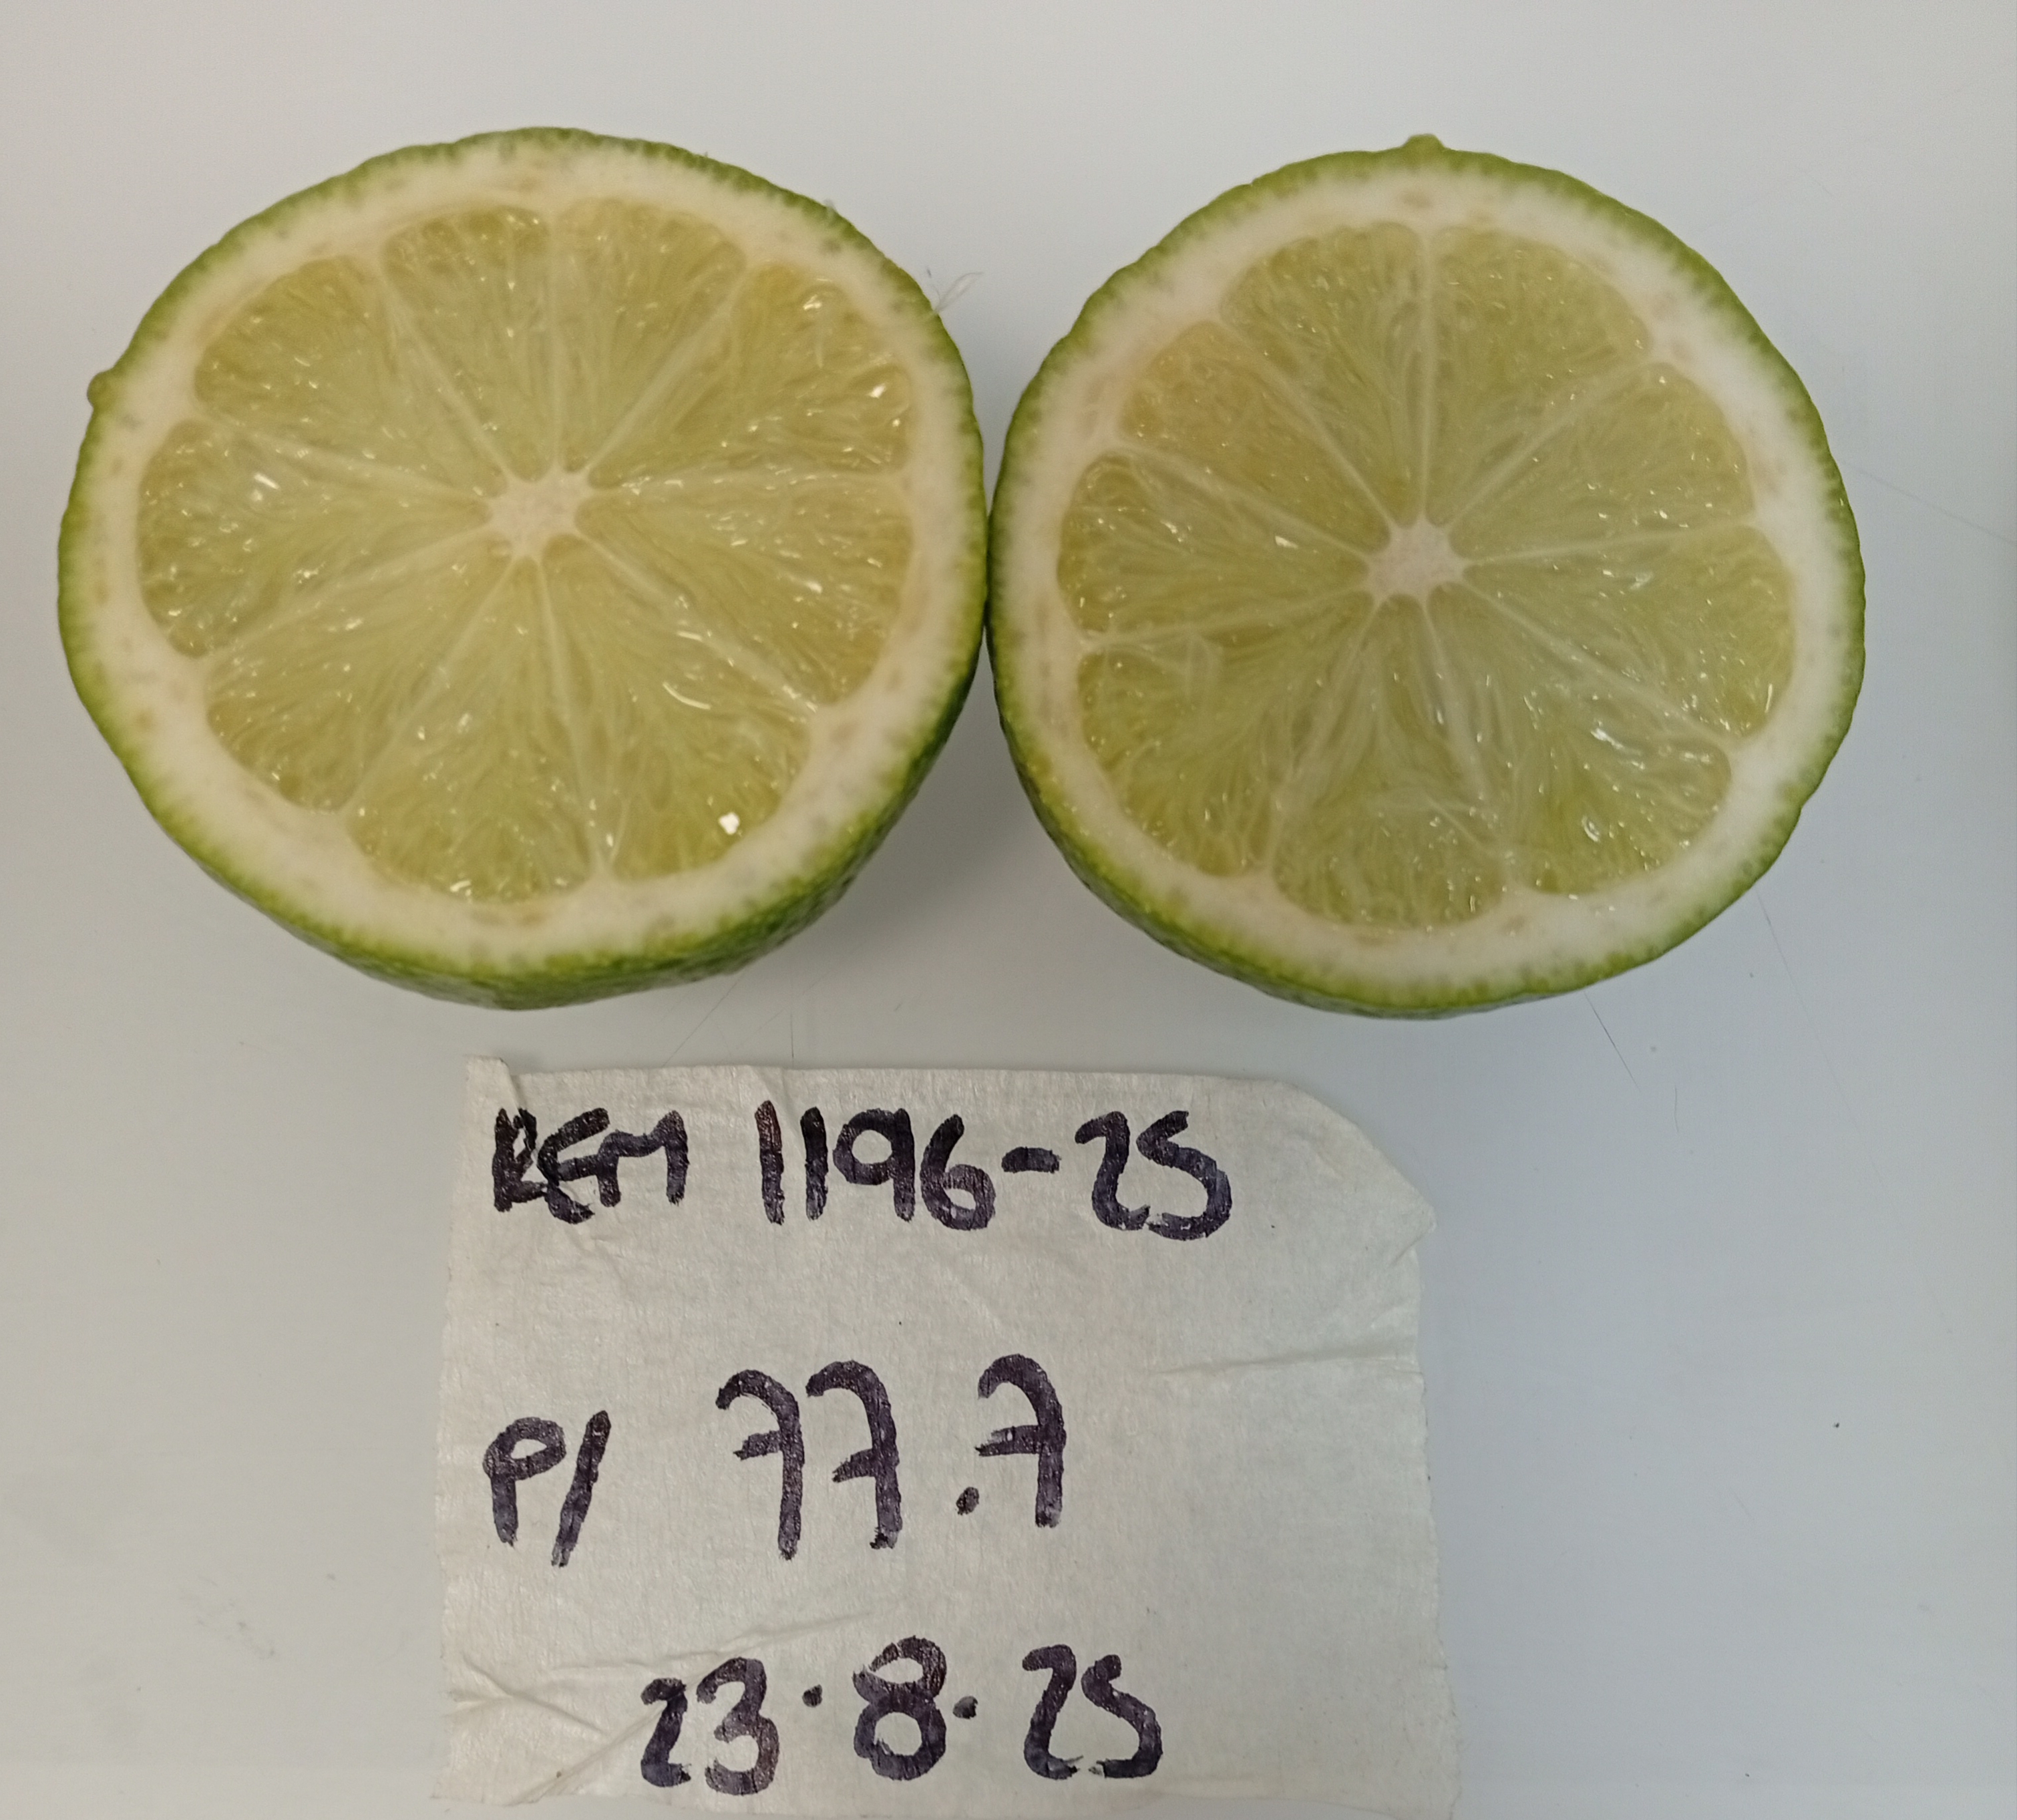 REM 1196-25
P/ 77.7
23.8.25